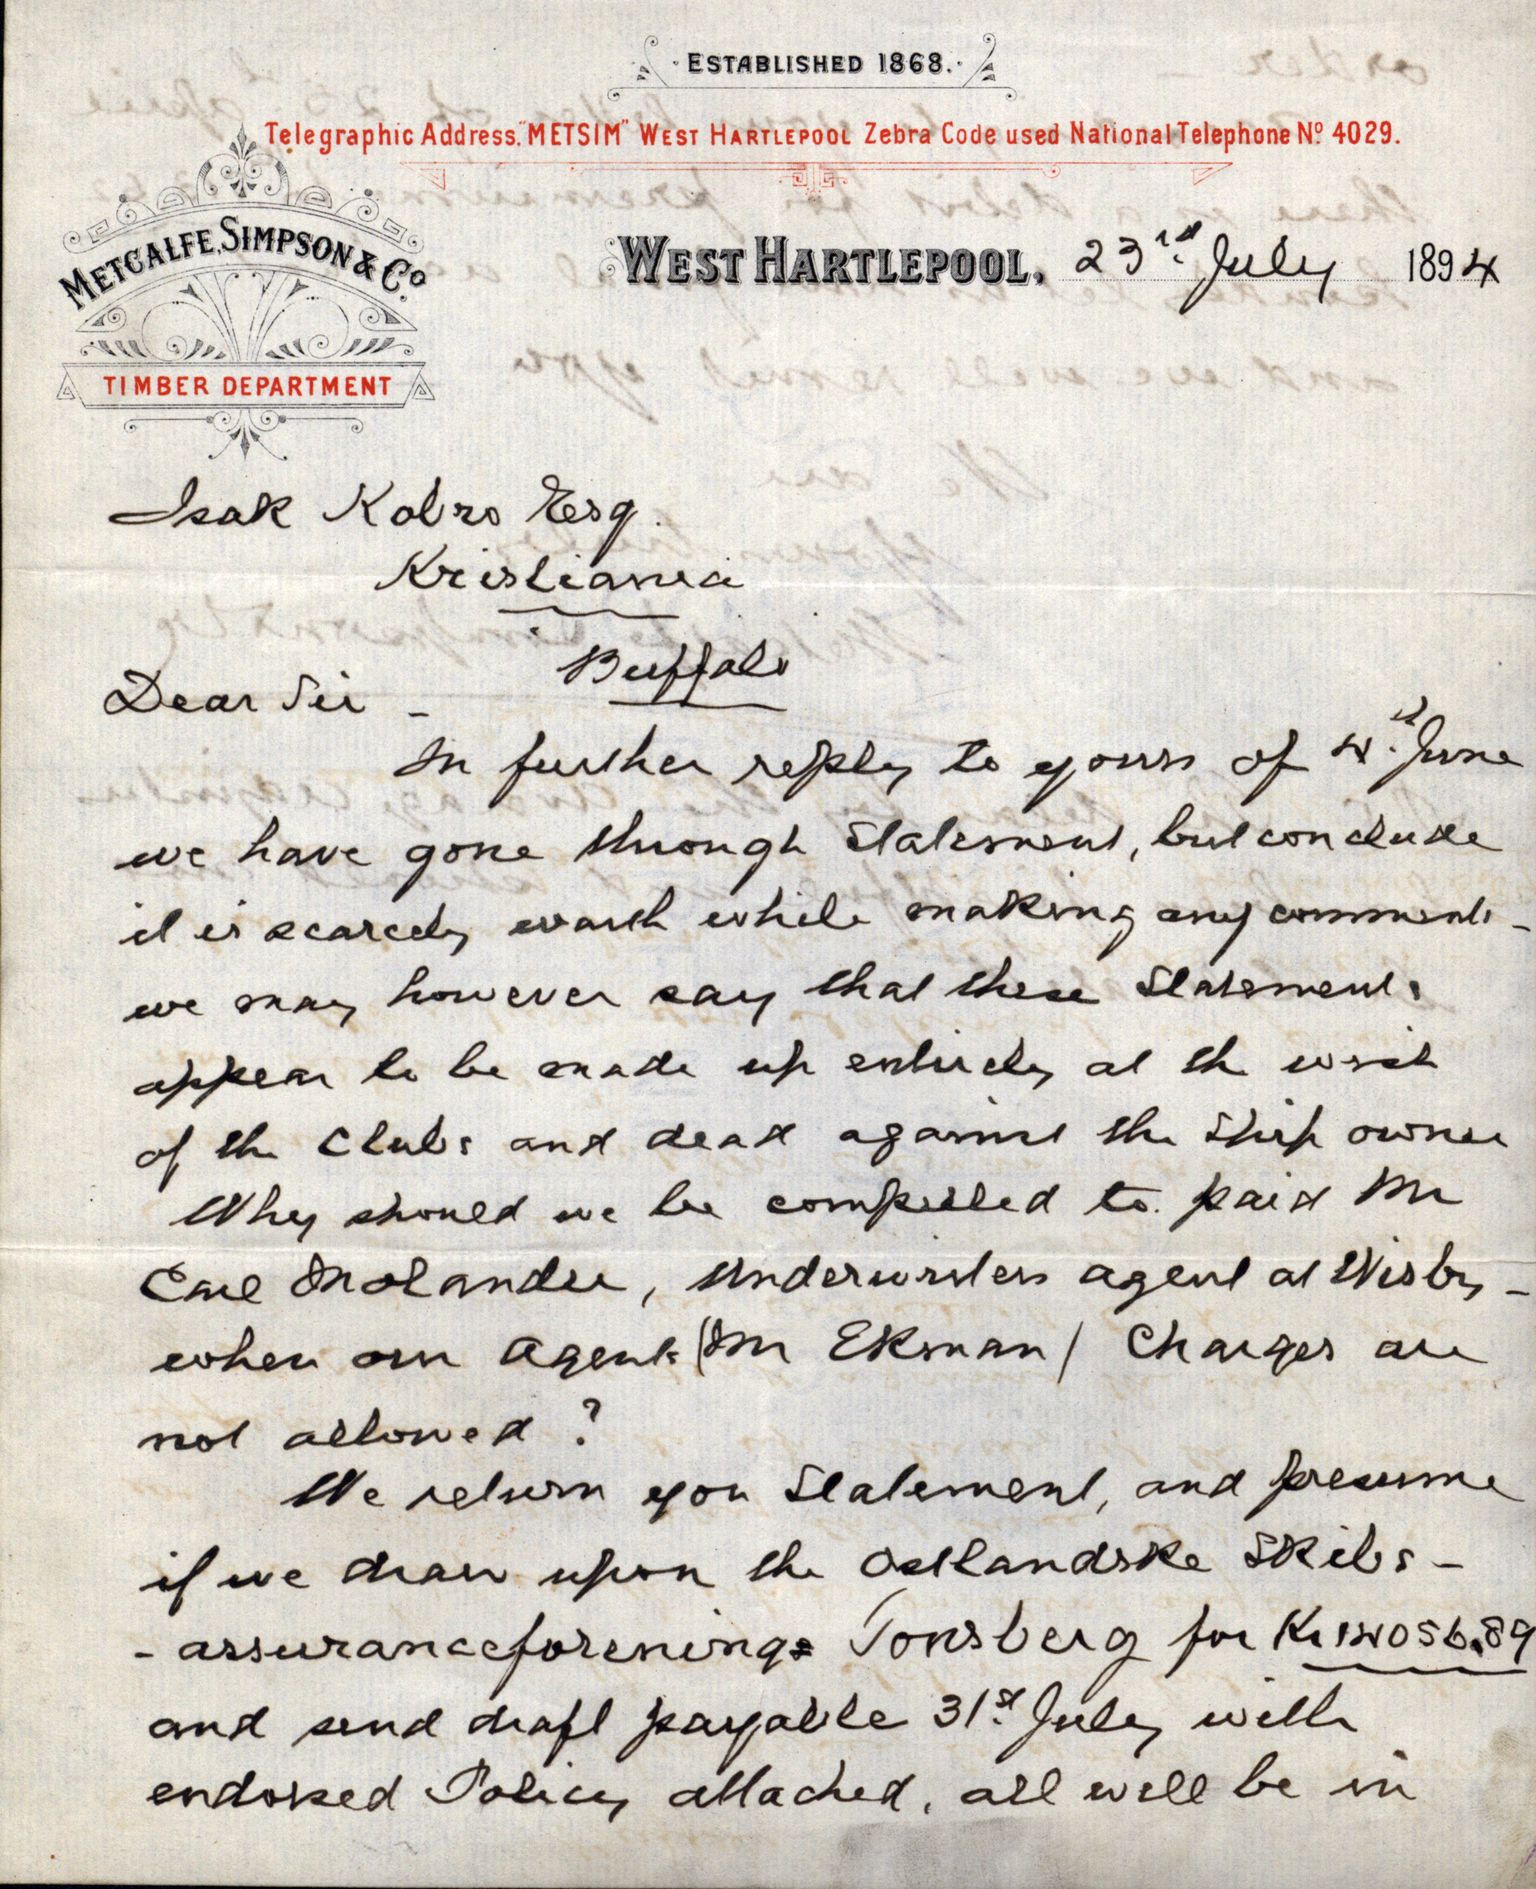 ESTABLISHED 1868.
Telegraphic Address, "METSIM" WEST HARTLEPOOL Zebra Code used National Telephone No. 4029.
METCALFE, SIMPSON & Co.
TIMBER DEPARTMENT
WEST HARTLEPOOL, 23rd July 1894
Isak Kobro Esq.
Kristiania
Buffalo
Dear Sir –
In further reply to yours of 4th June
we have gone through Statement, but conclude
it is scarcely worth while making any comments –
we may however say that these Statements
appear to be made up entirely at the wish
of the Clubs and dead against the Ship owner
Why should we be compelled to paid Mr
Carl Molander, Underwriters agent at Wisby –
when our Agents (Mr Ekman) Charges are
not allowed?
We return you Statement, and presume
if we draw upon the Ostlandske Skibs –
- assuranceforening Tonsberg for Kr 14056.89
and send draft payable 31st July with
endorsed Policy attached, all will be in